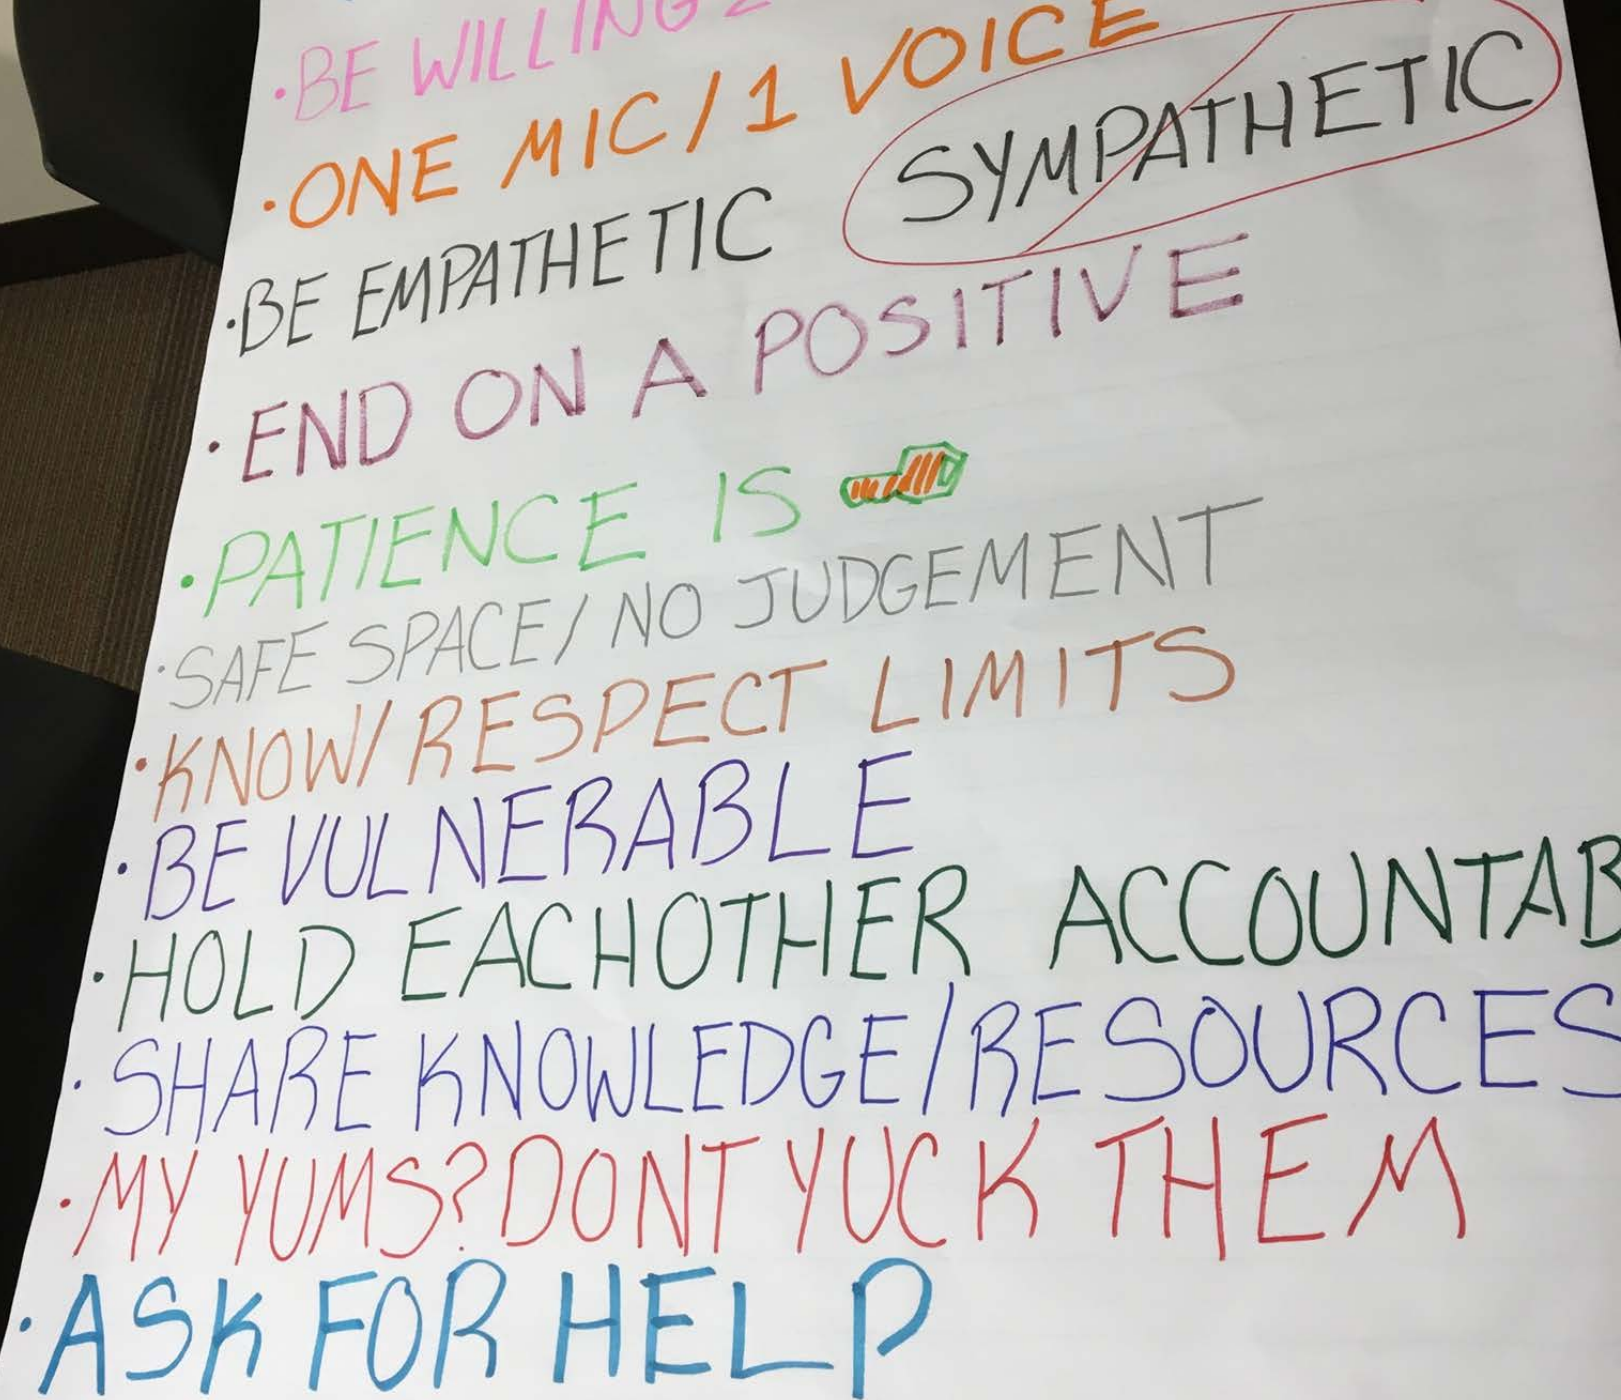 ·BE WILLING 2
·ONE MIC/1 VOICE
·BE EMPATHETIC SYMPATHETIC
·END ON A POSITIVE
·PATIENCE IS
·SAFE SPACE/NO JUDGEMENT
·KNOW/RESPECT LIMITS
·BE VULNERABLE
·HOLD EACHOTHER ACCOUNTAB
·SHARE KNOWLEDGE/RESOURCES
·MY YUMS? DONT YUCK THEM
·ASK FOR HELP